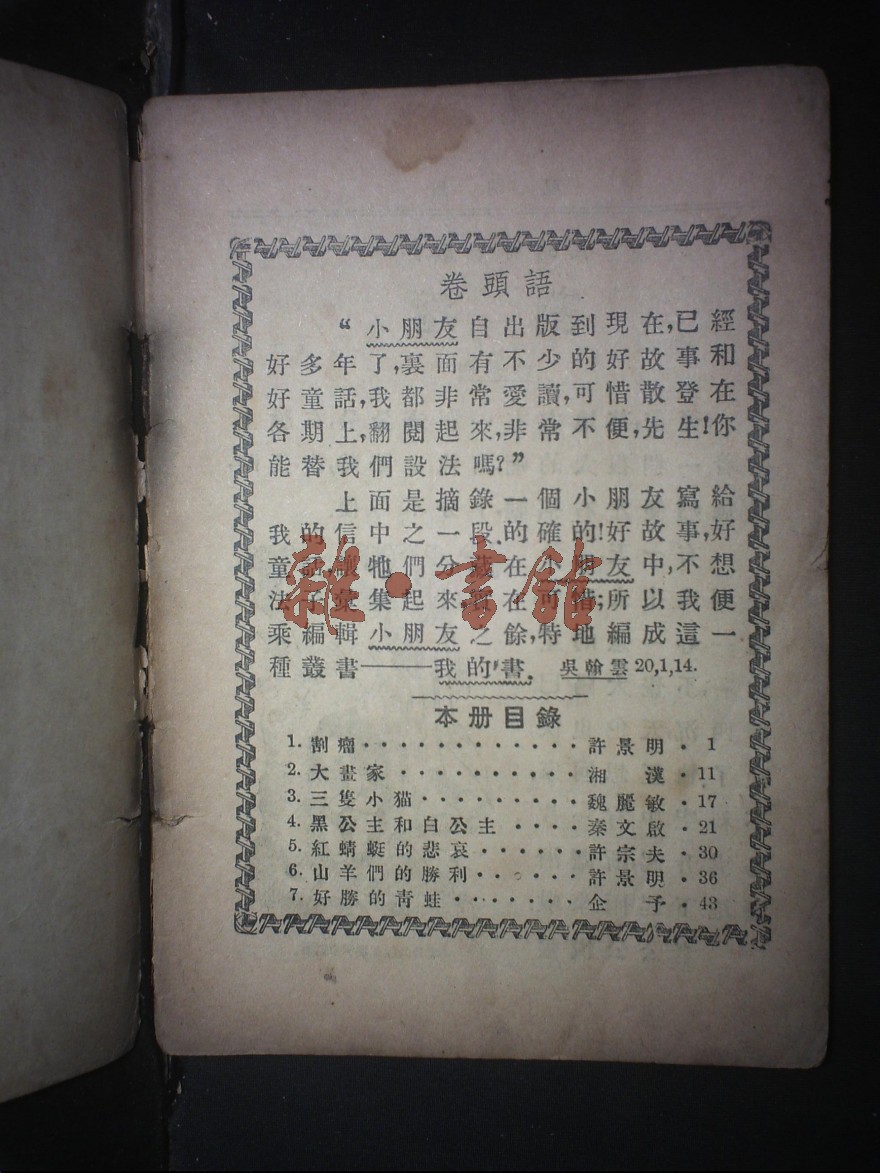 卷頭語
“小朋友自出版到現在,已經
好多年了,裏面有不少的好故事和
好童話,我都非常愛讀,可惜散登在
各期上,翻閱起來,非常不便,先生!你
能替我們設法嗎?”
上面是摘錄一個小朋友寫給
我的信中之一段.的確的!好故事,好
童話,讓牠們分藏在小朋友中,不想
法子彙集起來,實在可惜;所以我便
乘編輯小朋友之餘,特地編成這一
種叢書——我的書. 吳翰雲 20,1,14.
本册目錄
1. 割瘤············許景明·1
2. 大畫家··········湘漢·11
3. 三隻小猫·········魏麗敏·17
4. 黑公主和白公主····秦文啟·21
5. 紅蜻蜓的悲哀······許宗夫·30
6. 山羊們的勝利······許景明·36
7. 好勝的靑蛙·······企予·43
雜·書館